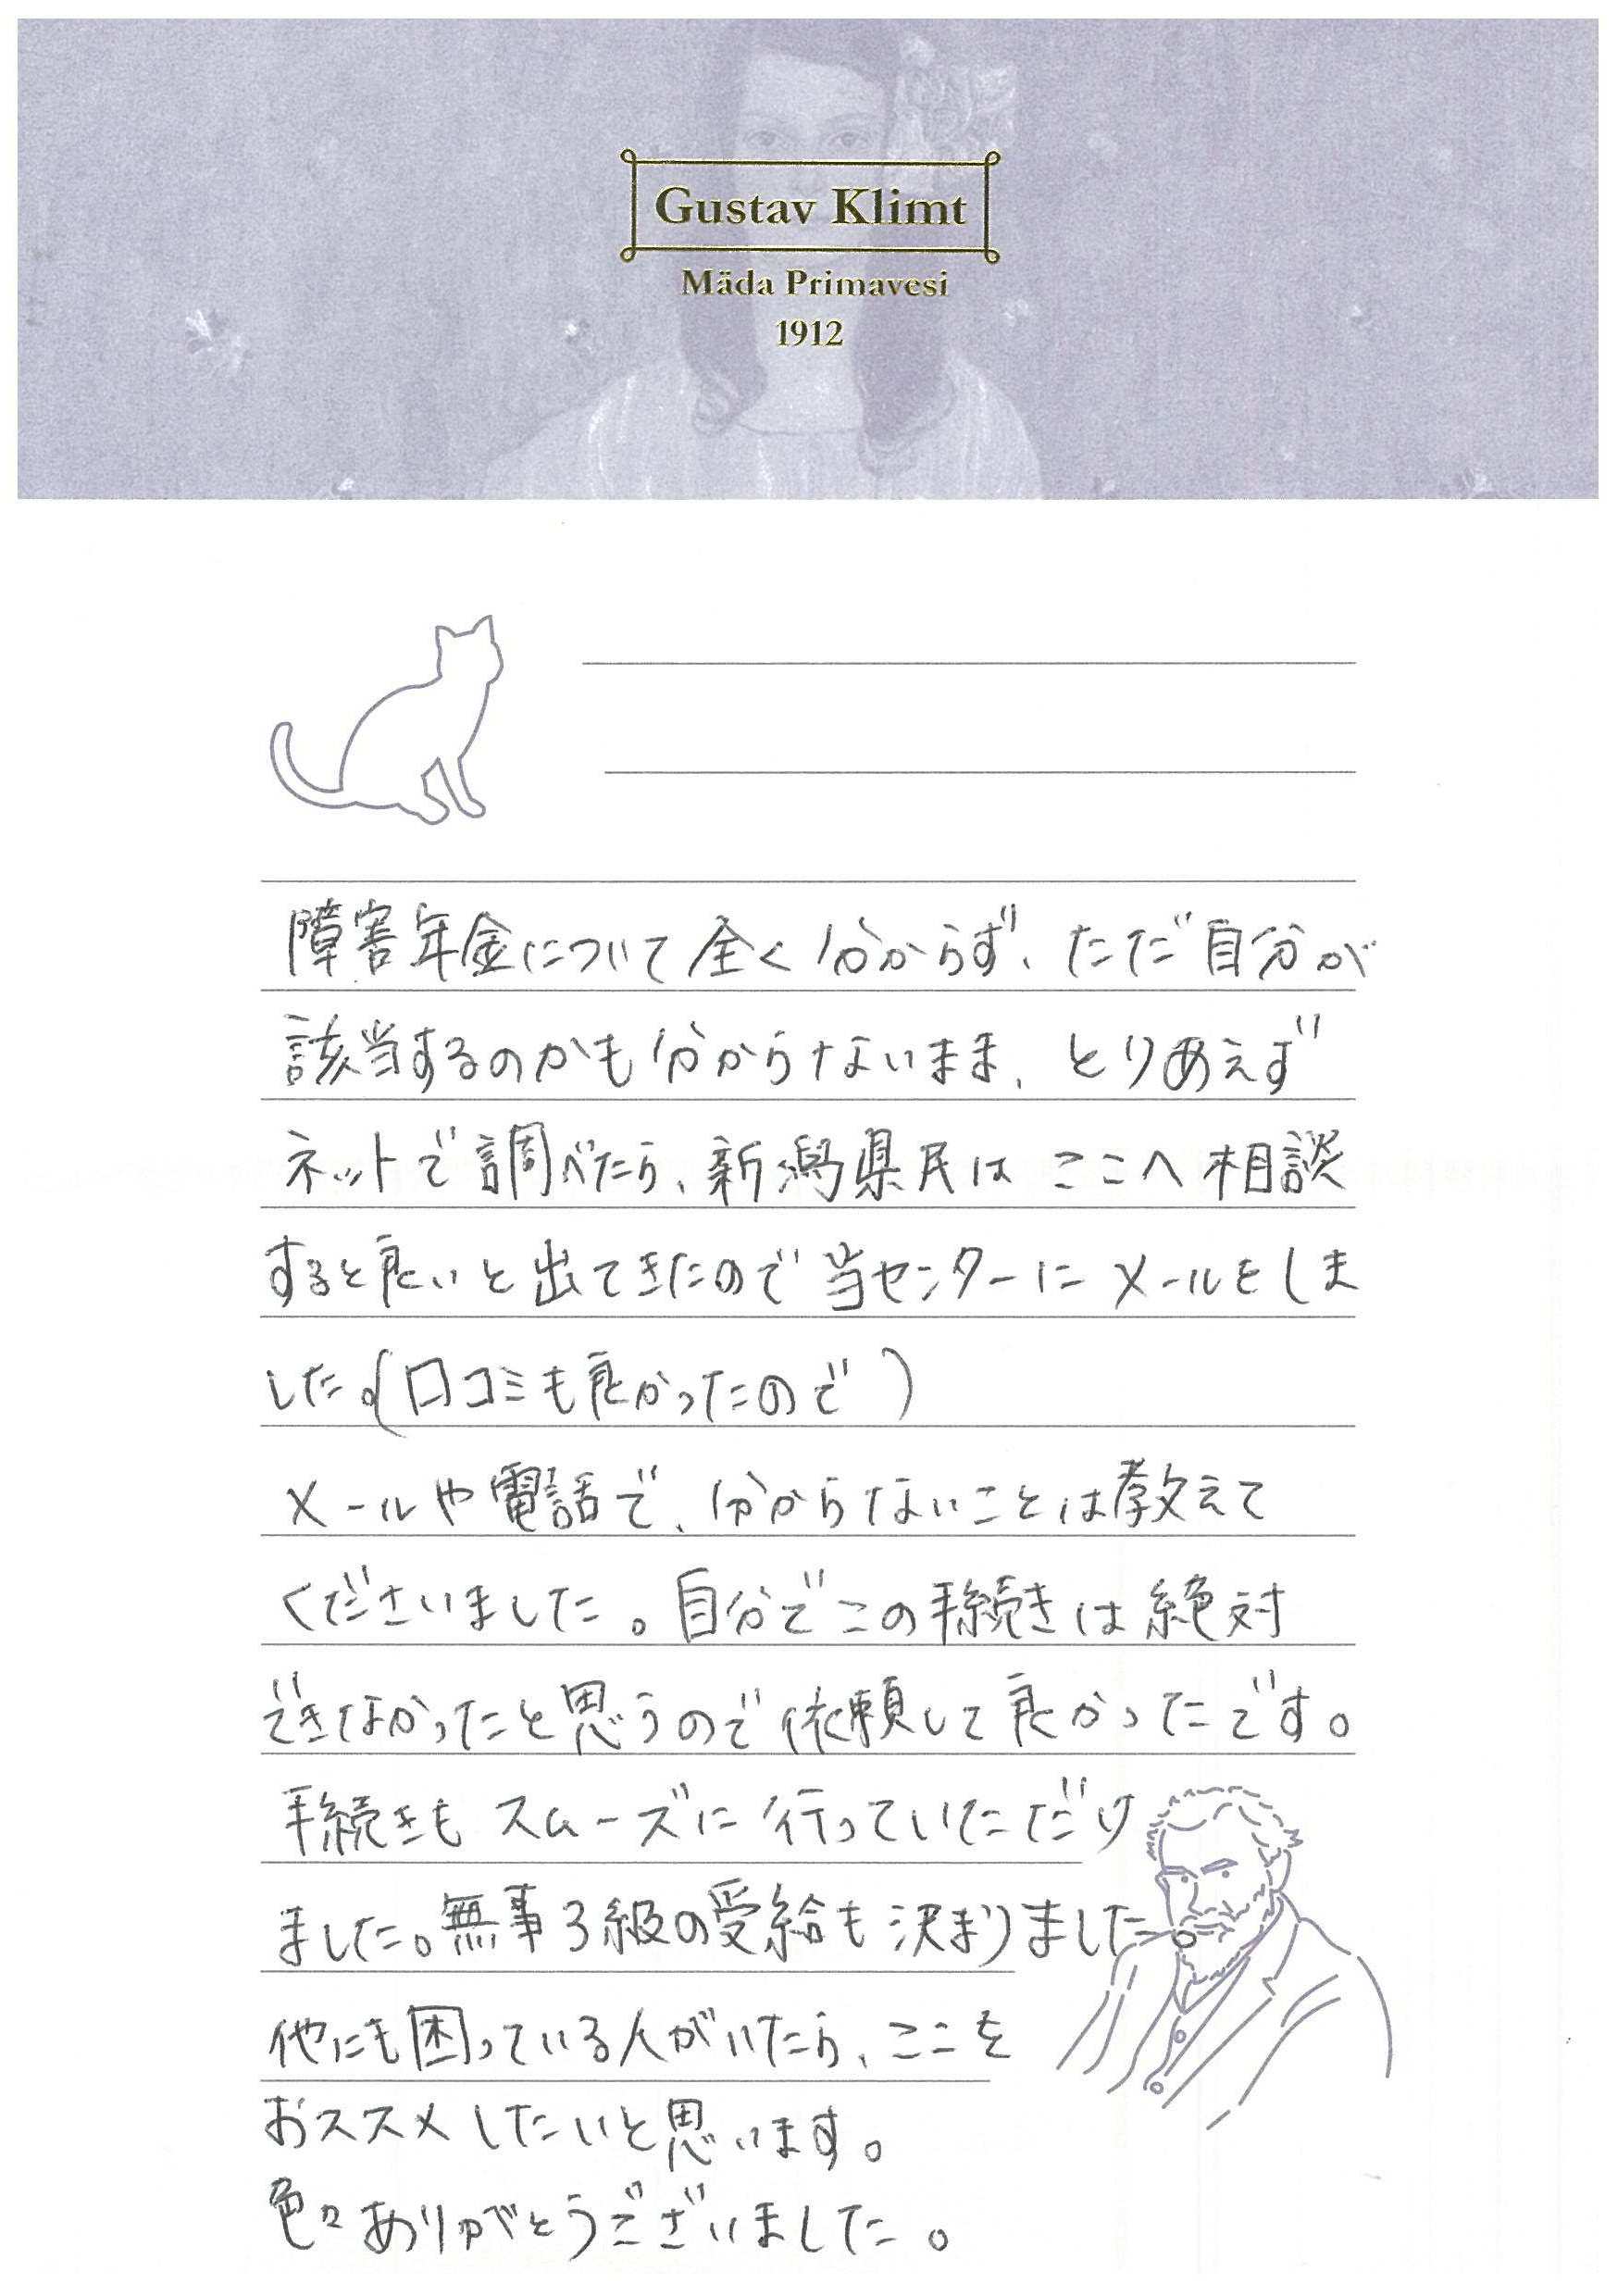 Gustav Klimt
Mäda Primavesi
1912
障害年金について全く分からず、ただ自分が
該当するのかも分からないまま、とりあえず
ネットで調べたら、新潟県民はここへ相談
すると良いと出てきたので当センターにメールをしま
した。(口コミも良かったので)
メールや電話で、分からないことは教えて
くださいました。自分でこの手続きは絶対
できなかったと思うので依頼して良かったです。
手続きもスムーズに行っていただけ
ました。無事3級の受給も決まりました。
他にも困っている人がいたら、ここを
おススメしたいと思います。
色々ありがとうございました。